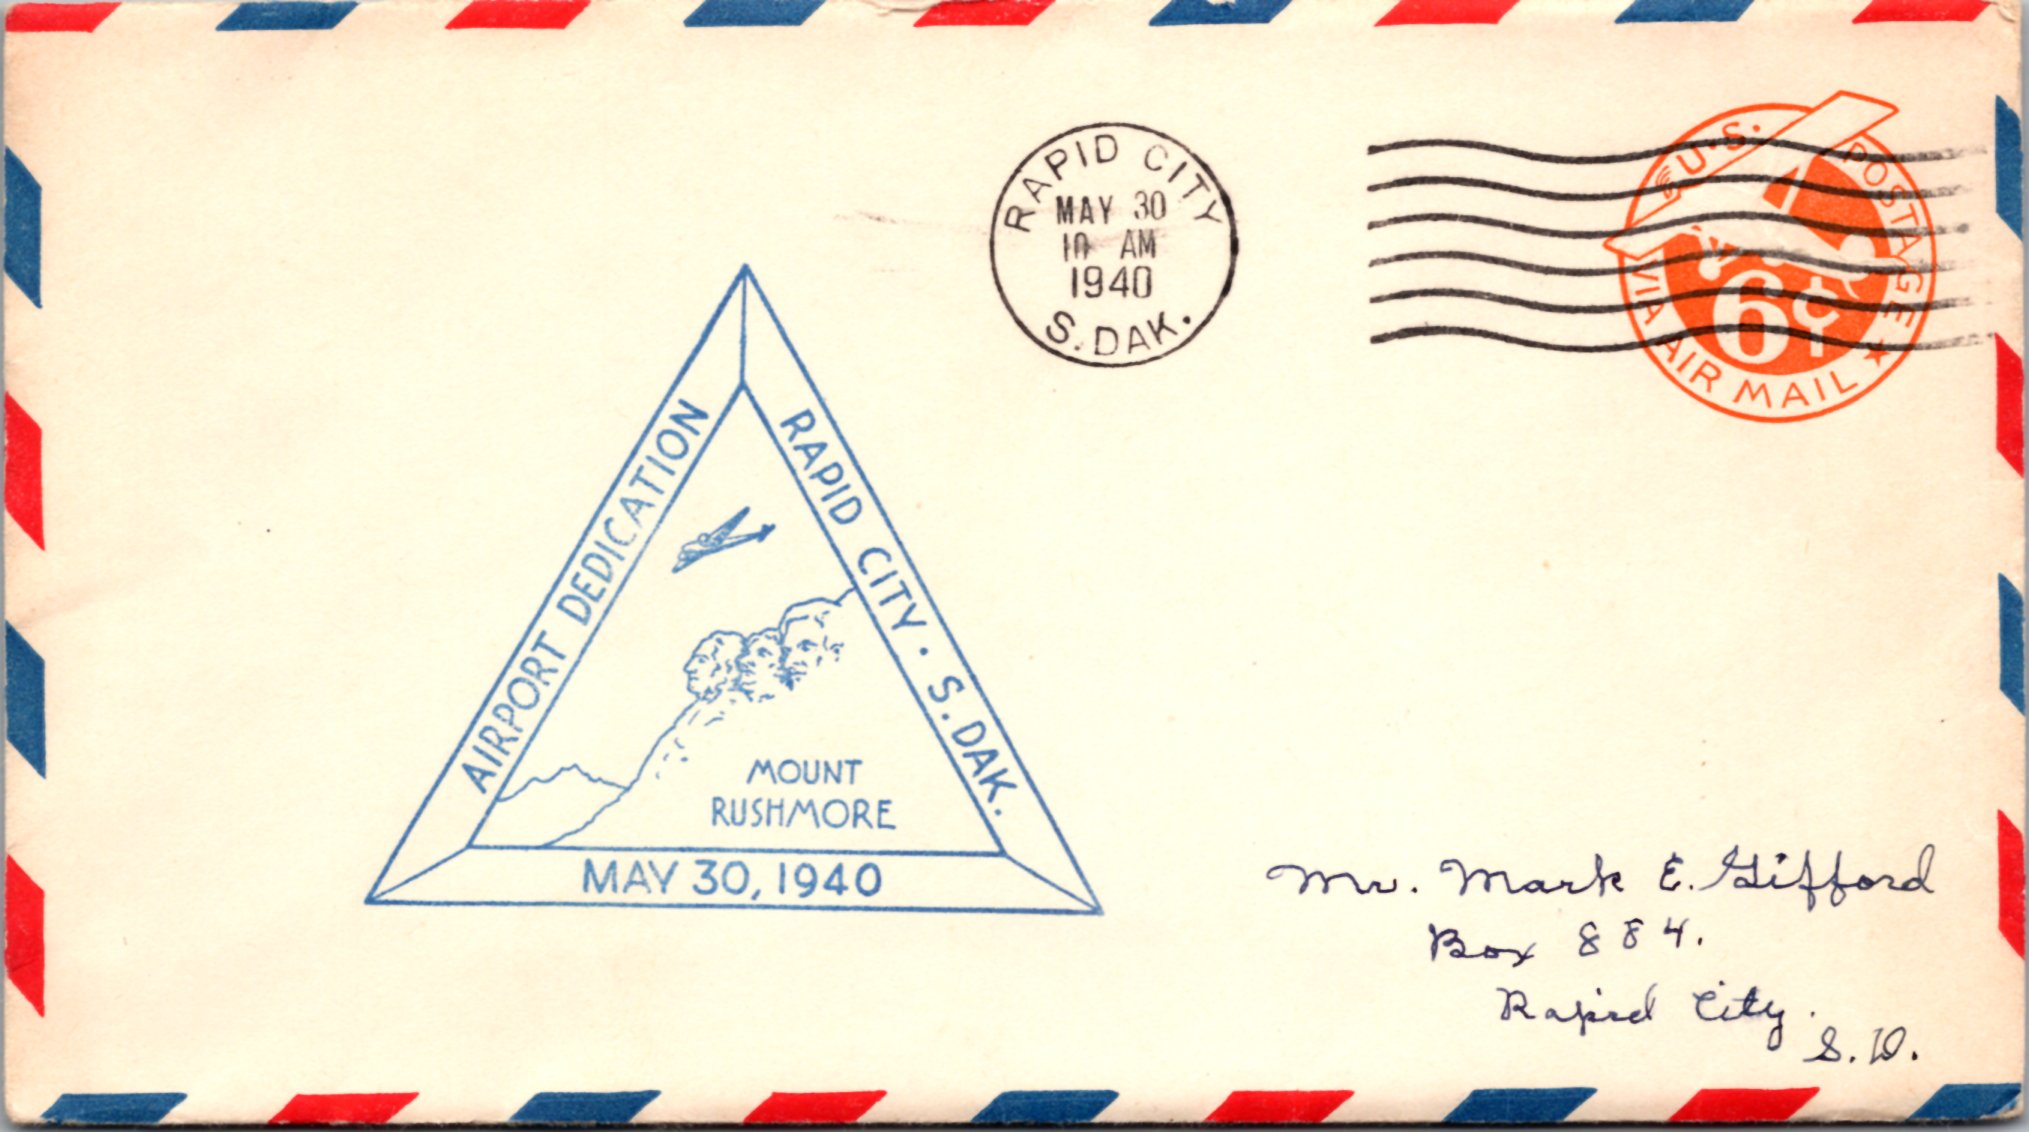 RAPID CITY
MAY 30
10 AM
1940
S. DAK.
U.S. POSTAGE
6¢
VIA AIR MAIL
AIRPORT DEDICATION
RAPID CITY · S. DAK.
MOUNT
RUSHMORE
MAY 30, 1940
Mr. Mark E. Gifford
Box 884.
Rapid City.
S.D.